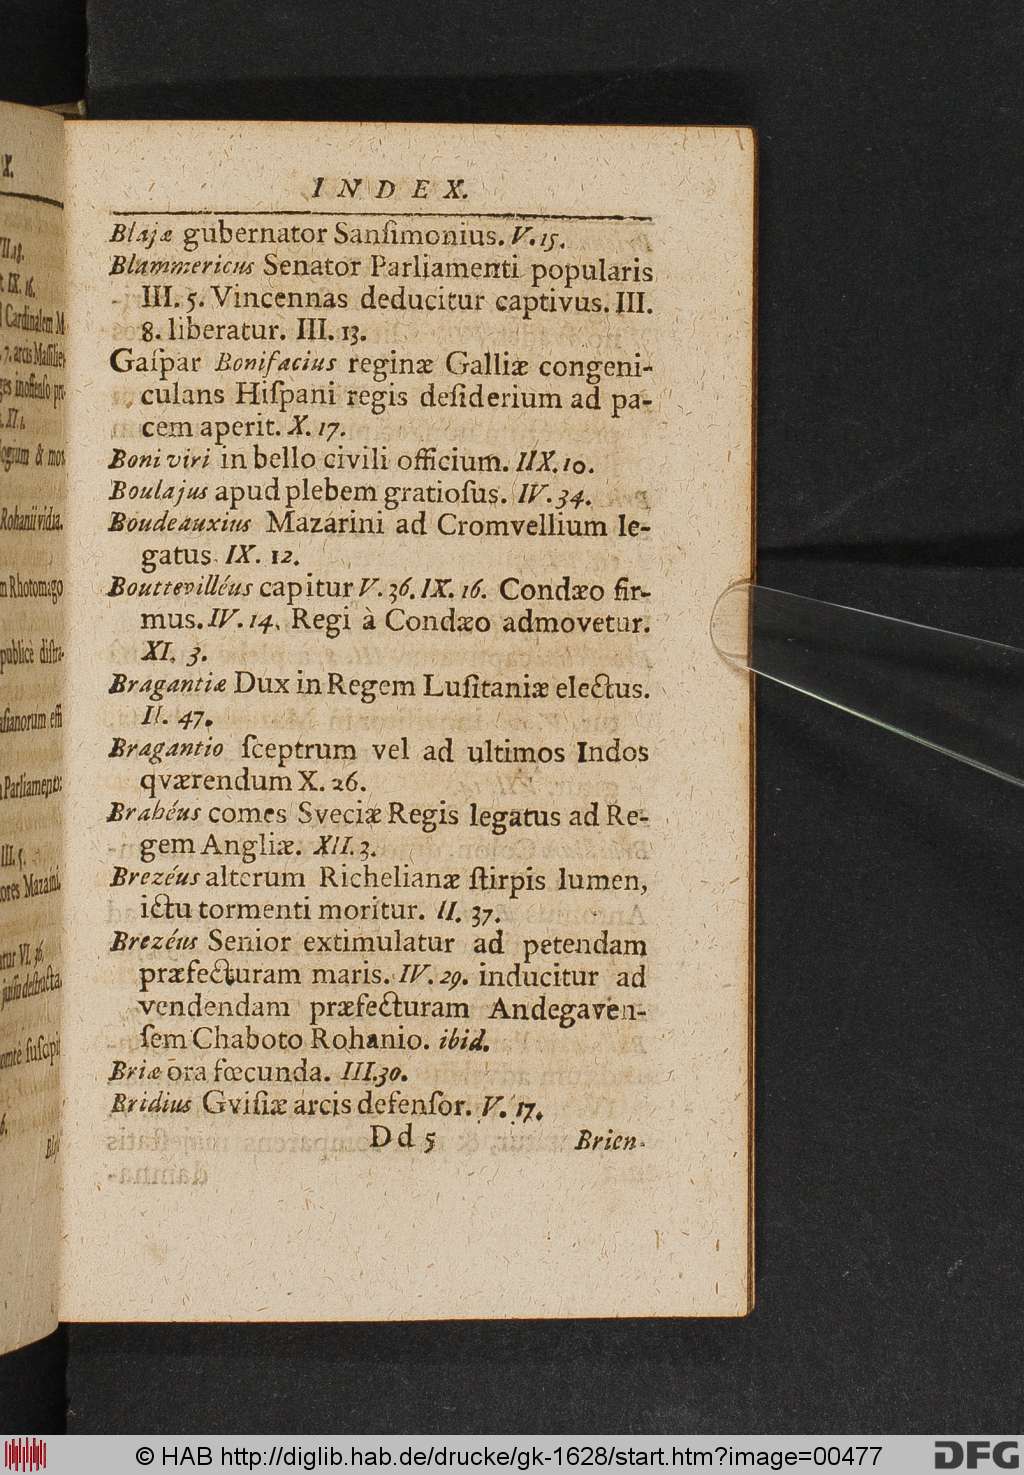 INDEX.
Blajæ gubernator Sanſimonius. V. 15.
Blammericus Senator Parliamenti popularis
III. 5. Vincennas deducitur captivus. III.
8. liberatur. III. 13.
Gaſpar Bonifacius reginæ Galliæ congeni-
culans Hiſpani regis deſiderium ad pa-
cem aperit. X. 17.
Boni viri in bello civili officium. IIX. 10.
Boulajus apud plebem gratioſus. IV. 34.
Boudeauxius Mazarini ad Cromvellium le-
gatus. IX. 12.
Bouttevilléus capitur V. 36. IX. 16. Condæo fir-
mus. IV. 14. Regi à Condæo admovetur.
XI. 3.
Bragantiæ Dux in Regem Luſitaniæ electus.
II. 47.
Bragantio ſceptrum vel ad ultimos Indos
qværendum X. 26.
Brahéus comes Sveciæ Regis legatus ad Re-
gem Angliæ. XII. 3.
Brezéus alterum Richelianæ ſtirpis lumen,
ictu tormenti moritur. II. 37.
Brezéus Senior extimulatur ad petendam
præfecturam maris. IV. 29. inducitur ad
vendendam præfecturam Andegaven-
ſem Chaboto Rohanio. ibid.
Briæ ora fœcunda. III. 30.
Bridius Gviſiæ arcis defenſor. V. 17.
Dd 5 Brien-
X.
VII. 18.
t IX. 16.
Cardinalem M
7. arcis Maſſilie,
ges inoffenſo pro-
XI.
& mos
Rohanii vidua.
m Rhotomago
publicè diſtra-
aſianorum effi
Parliamento:
III. 5.
ores Mazarini,
tur VI. 36.
juſſu deſtructa,
ſuſcipit
6.
Blaj
© HAB http://diglib.hab.de/drucke/gk-1628/start.htm?image=00477
DFG